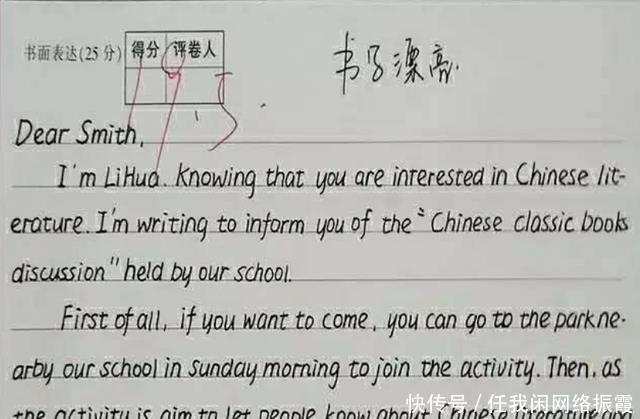 书面表达(25分) 得分 评卷人
书写漂亮.
Dear Smith,
I'm LiHua. Knowing that you are interested in Chinese lit-
erature. I'm writing to inform you of the "Chinese classic books
discussion" held by our school.
First of all, if you want to come, you can go to the park ne-
arby our school in Sunday morning to join the activity. Then, as
the activity is aim to let people know about Chinese literature
快传号 / 任我闲网络振霞